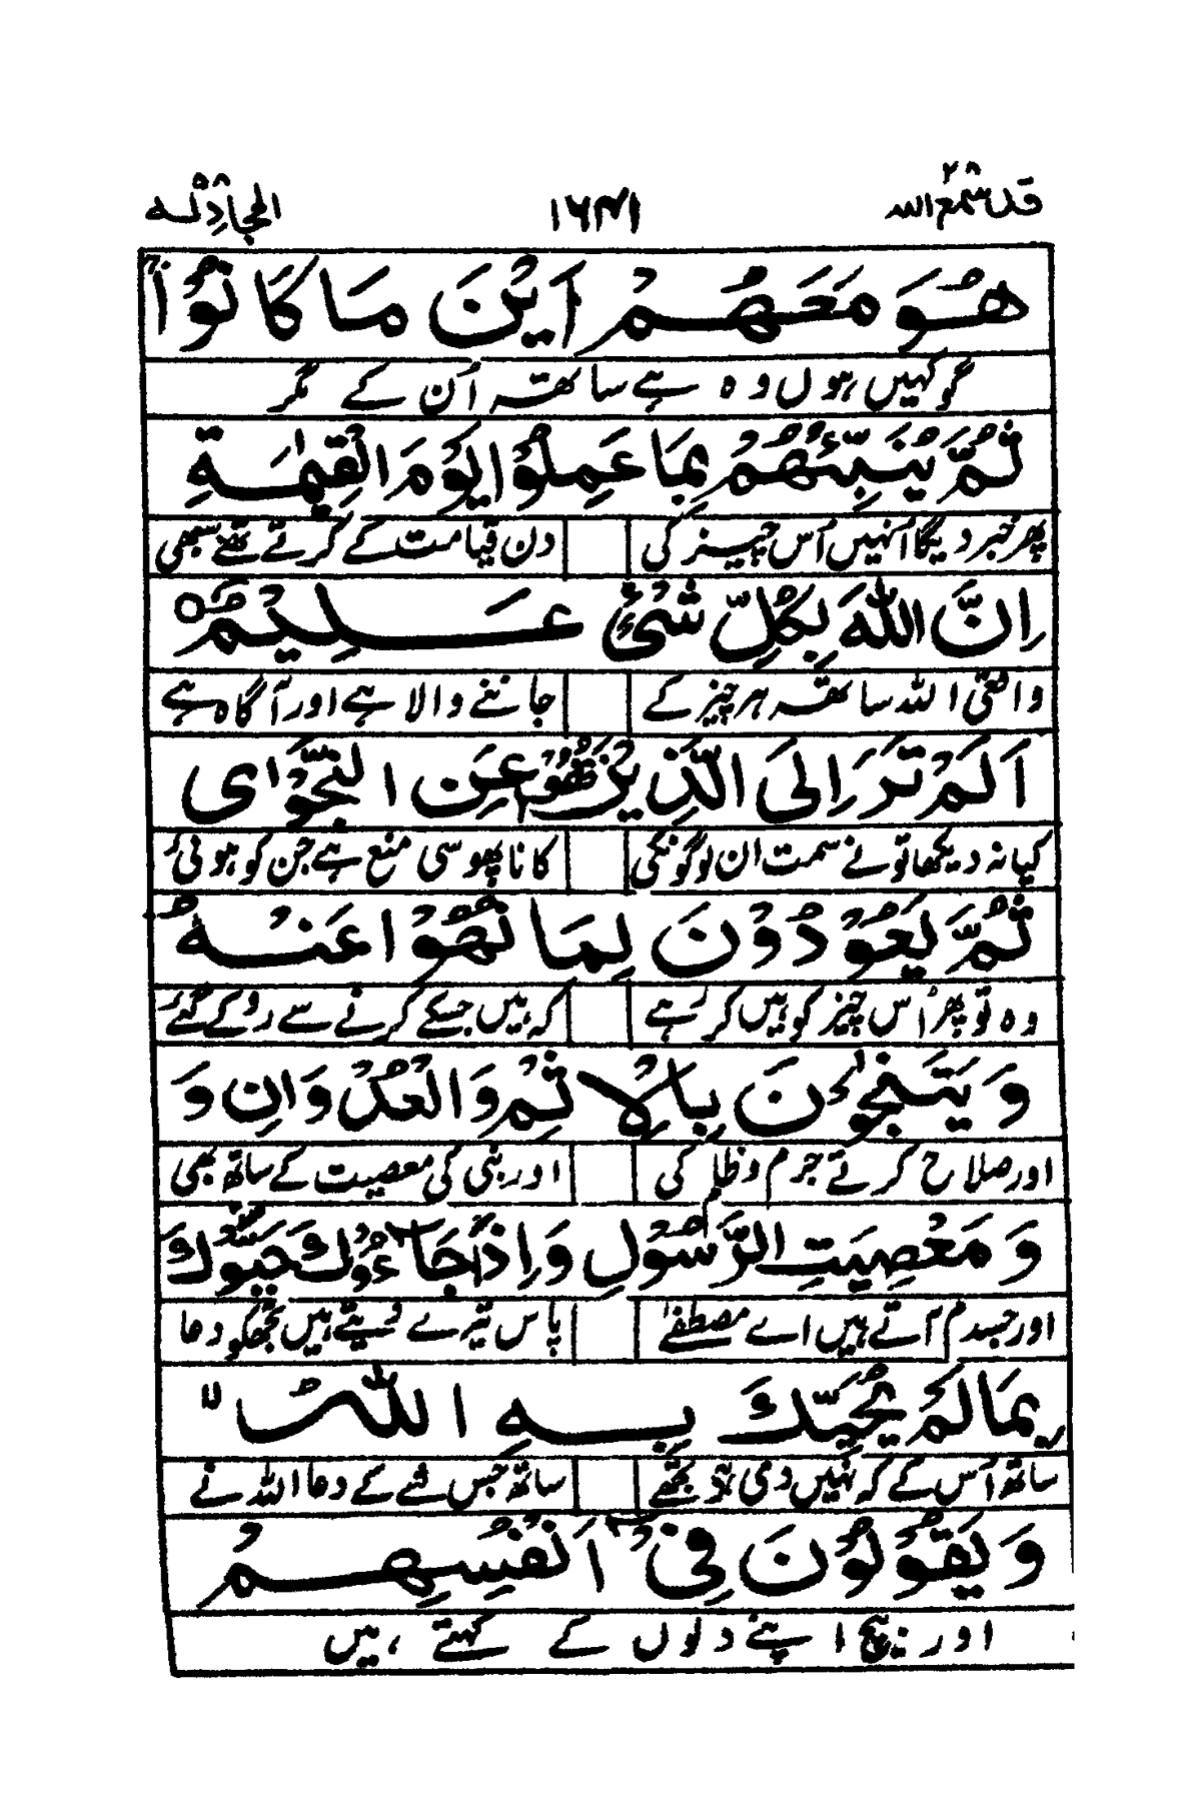 قد سمع الله ۲۸ ۱۶۴۱ المجادلة ۵۸
هُوَ مَعَهُمْ اَيْنَ مَا كَانُوْا ۚ
گو کہیں ہوں وہ ہے ساتھ اُن کے مگر
ثُمَّ يُنَبِّئُهُمْ بِمَا عَمِلُوْا يَوْمَ الْقِيٰمَةِ
پھر خبر دیگا اُنہیں اُس چیز کی دن قیامت کے کرتے تھے سبھی
اِنَّ اللّٰهَ بِكُلِّ شَيْءٍ عَلِيْمٌ ○
واقعی اللہ ساتھ ہر چیز کے جاننے والا ہے اور آگاہ ہے
اَلَمْ تَرَ اِلَى الَّذِيْنَ نُهُوْا عَنِ النَّجْوٰى
کیا نہ دیکھا تو نے سمت ان لوگونکی کانا پھوسی منع ہے جن کو ہوئی
ثُمَّ يَعُوْدُوْنَ لِمَا نُهُوْا عَنْهُ
وہ تو پھر اُس چیز کو ہیں کر رہے کہ ہیں جسکے کرنے سے روکے گئے
وَ يَتَنٰجَوْنَ بِالْاِثْمِ وَ الْعُدْوَانِ وَ
اور صلاح کرتے جرم و ظلم کی اور نبی کی معصیت کے ساتھ بھی
وَ مَعْصِيَتِ الرَّسُوْلِ وَ اِذَا جَآءُوْكَ حَيَّوْكَ
اور جسدم آتے ہیں اے مصطفےٰ پاس تیرے دیتے ہیں تجھکو دعا
بِمَا لَمْ يُحَيِّكَ بِهِ اللّٰهُ ۙ
ساتھ اُس کے کہ نہیں دی تجھے ساتھ جس شے کے دعا اللہ نے
وَ يَقُوْلُوْنَ فِيْٓ اَنْفُسِهِمْ
اور بیچ اپنے دلوں کے کہتے ہیں